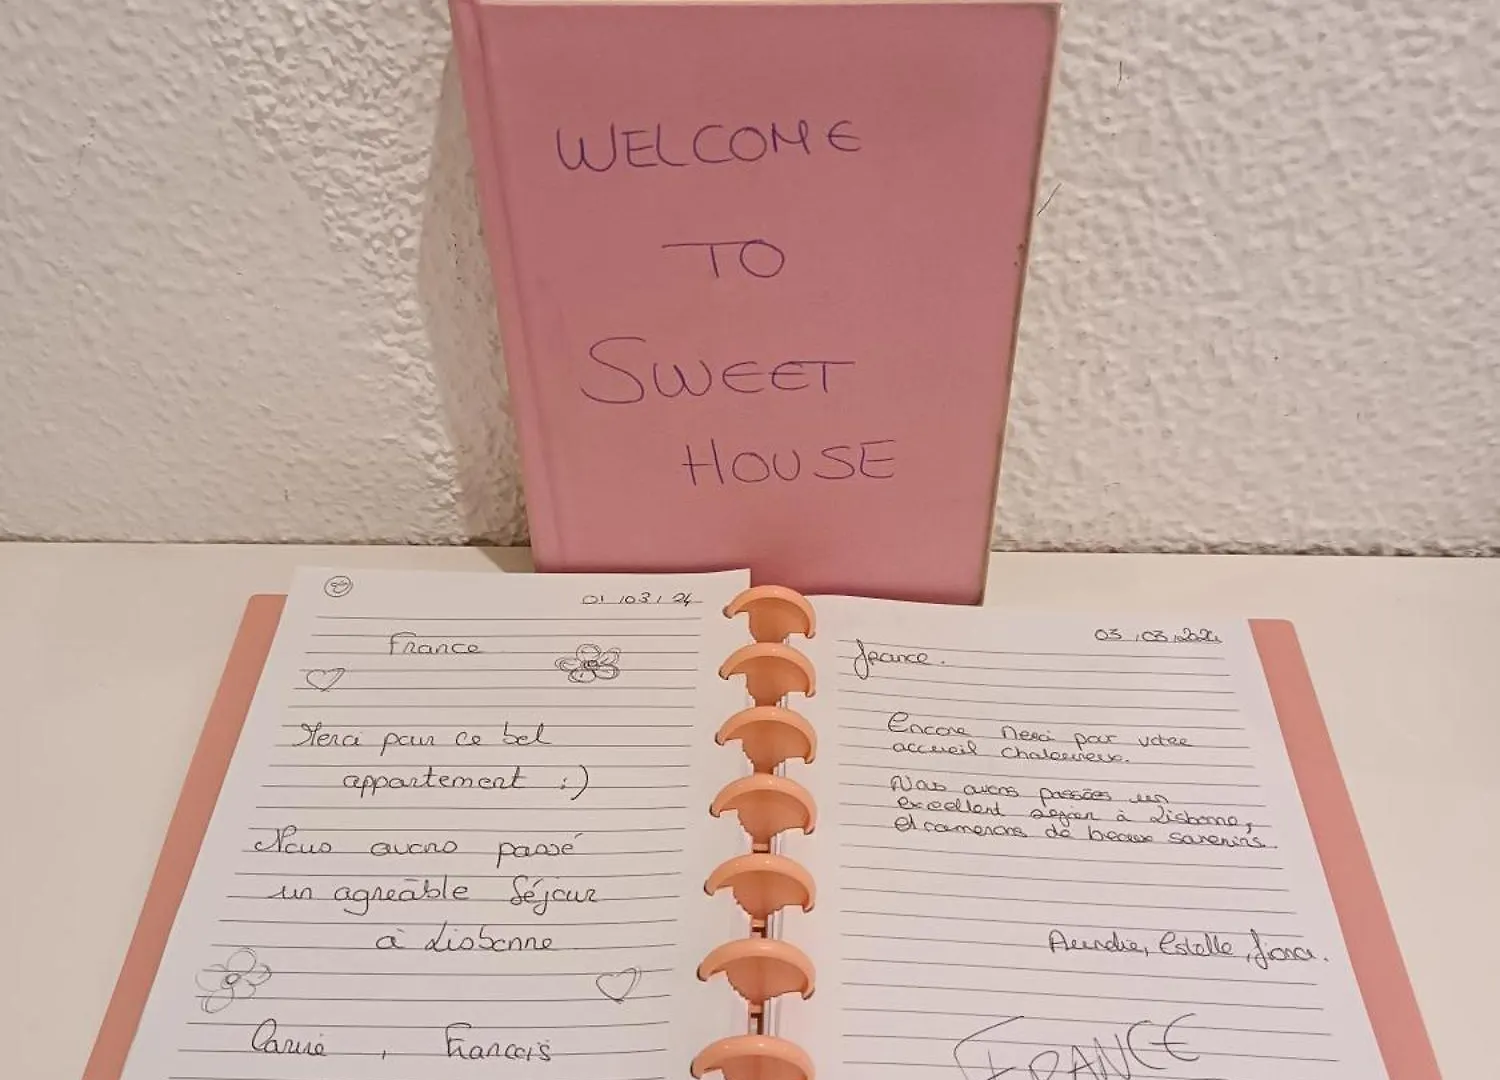 WELCOME
TO
SWEET
HOUSE
01/03/24
France
Merci pour ce bel
appartement :)
Nous avons passé
un agréable Séjour
à Lisbonne
Carine, Francois
03/03/2024
France.
Encore Merci pour votre
accueil chaleureux.
Nous avons passées un
excellent séjour à Lisbonne,
et ramenons de beaux souvenirs.
Estelle,
FRANCE